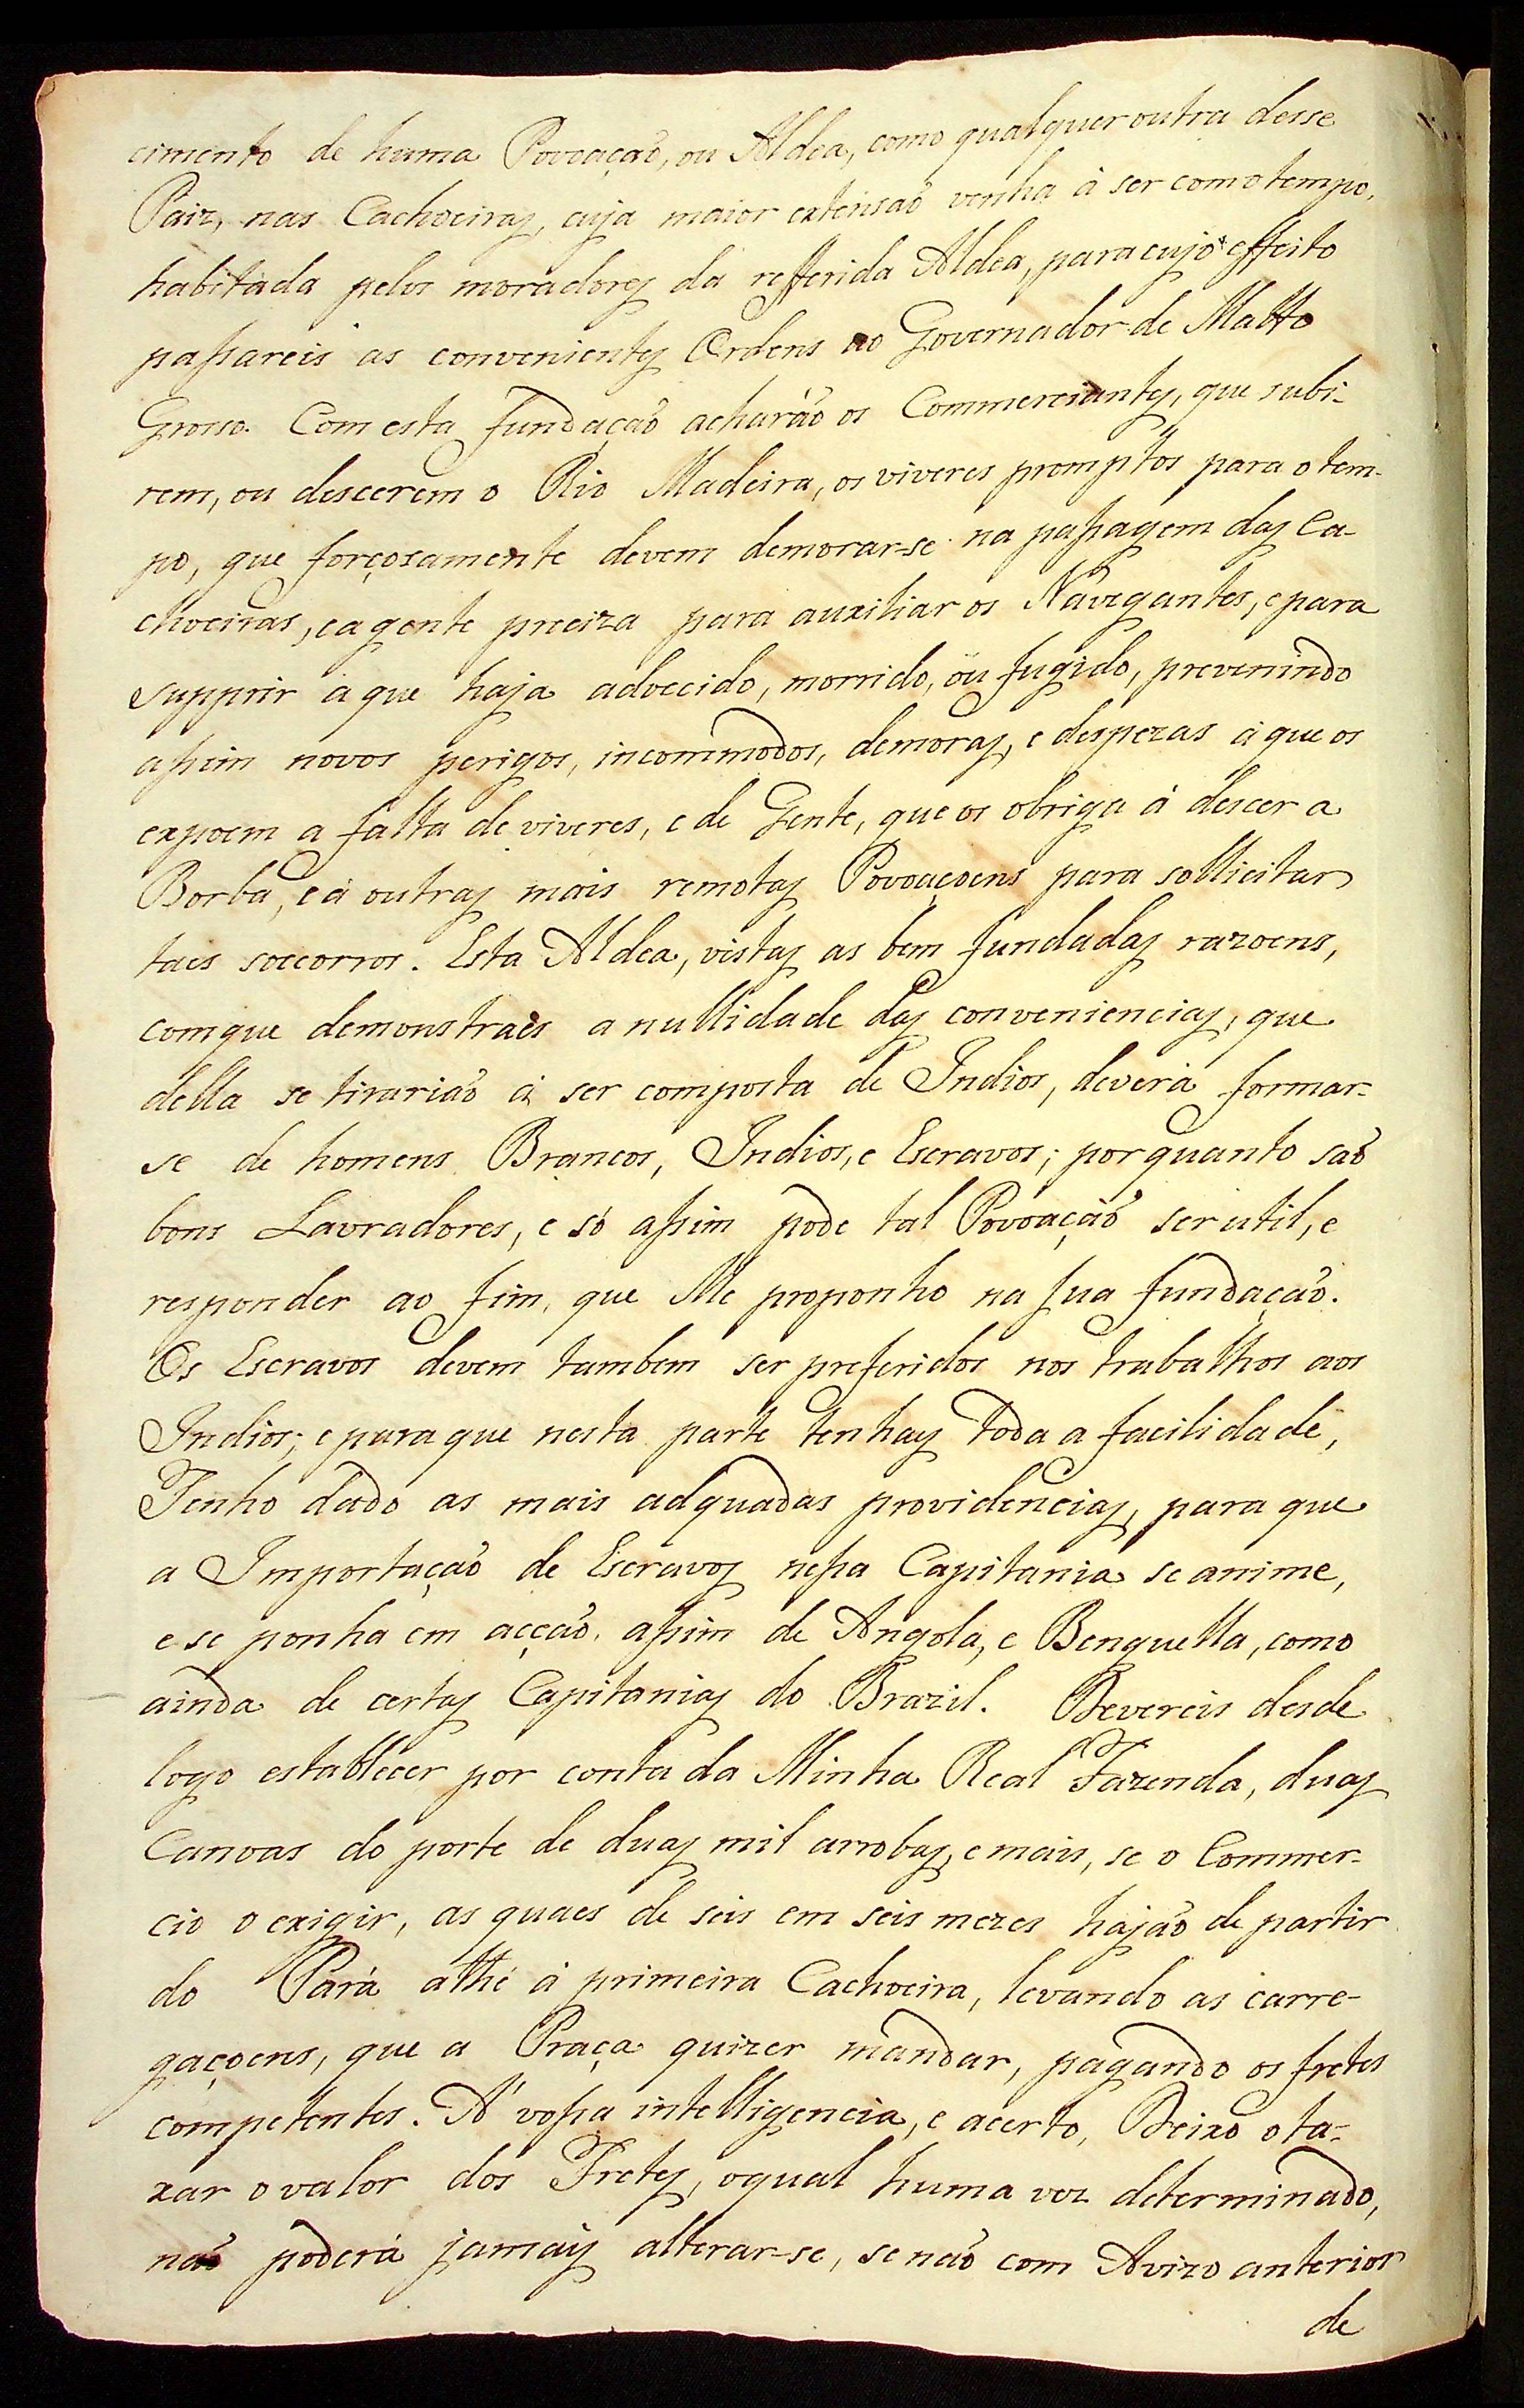 cimento de huma Povoação, ou Aldea, como qualquer outra desse
Paiz, nas Cachoeiras, cuja maior extensaõ venha à ser com o tempo,
habitada pelos moradores da refferida Aldea, para cujo effeito
passareis as convenientes Ordens ao Governador de Matto
Grosso. Com esta fundaçaõ acharáõ os Commerciantes, que subi-
rem, ou descerem o Rio Madeira, os viveres promptos para o tem-
po, que forçosamente devem demorar-se na passagem das Ca-
choeiras, e a gente preciza para auxiliar os Navegantes, e para
supprir à que haja adoecido, morrido, ou fugido, prevenindo
assim novos perigos, incommodos, demoras, e despezas à que os
expoem a falta de viveres, e de Gente, que os obriga à descer a
Borba, e à outras mais remotas Povoaçoens para sollicitar
taes soccorros. Esta Aldea, vistas as bem fundadas razoens,
com que demonstraes a nullidade das conveniencias, que
della se tirariaõ à ser composta de Indios, deverá formar-
se de homens Brancos, Indios, e Escravos; por quanto saõ
bons Lavradores, e só assim pode tal Povoaçaõ ser util, e
responder ao fim, que Me proponho na sua fundaçaõ.
Os Escravos devem tambem ser preferidos nos trabalhos aos
Indios; e para que nesta parte tenhas toda a facilidade,
Tenho dado as mais adquadas providencias, para que
a Importaçaõ de Escravos nessa Capitania se anime,
e se ponha em acçaõ, assim de Angola, e Benguella, como
ainda de certas Capitanias do Brazil. Devereis desde
logo establecer por conta da Minha Real Fazenda, duas
Canoas do porte de duas mil arrobas, e mais, se o Commer-
cio o exigir, as quaes de seis em seis mezes hajaõ de partir
do Pará athé à primeira Cachoeira, levando as carre-
gaçoens, que a Praça quizer mandar, pagando os fretes
competentes. Á vossa intelligencia, e acerto, Deixo o ta-
xar o valor dos Fretes, o qual huma vez determinado,
naõ poderá jamais alterar-se, senaõ com Avizo anterior
de